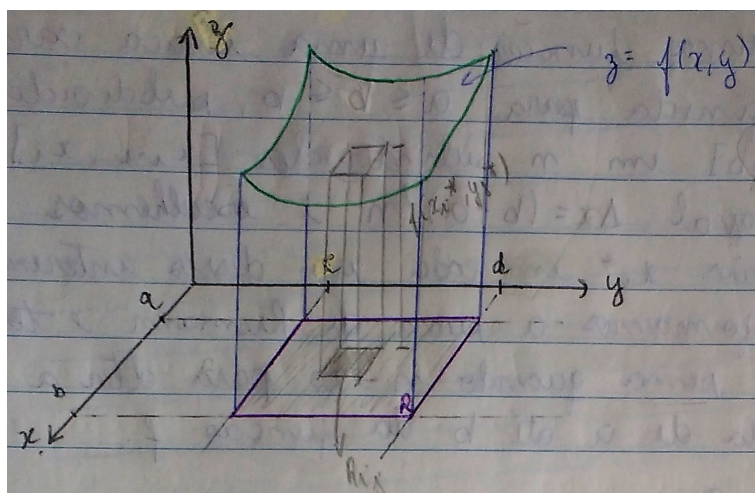 z
z = f(x,y)
f(xᵢⱼ*, yᵢⱼ*)
c
d
y
a
b
R
x
Rij